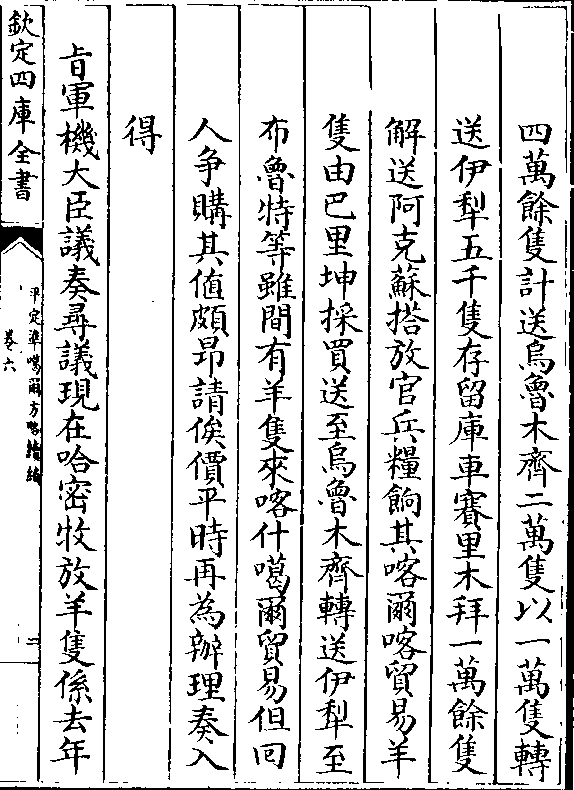 四萬餘隻計送烏魯木齊二萬隻以一萬隻轉
送伊犁五千隻存留庫車賽里木拜一萬餘隻
解送阿克蘇搭放官兵糧餉其喀爾喀貿易羊
隻由巴里坤採買送至烏魯木齊轉送伊犁至
布魯特等雖間有羊隻來喀什噶爾貿易但回
人争購其值頗昂請俟價平時再為辦理奏入
得
旨軍機大臣議奏尋議現在哈密牧放羊隻係去年
欽定四庫全書
平定準噶爾方略續編
卷六
二